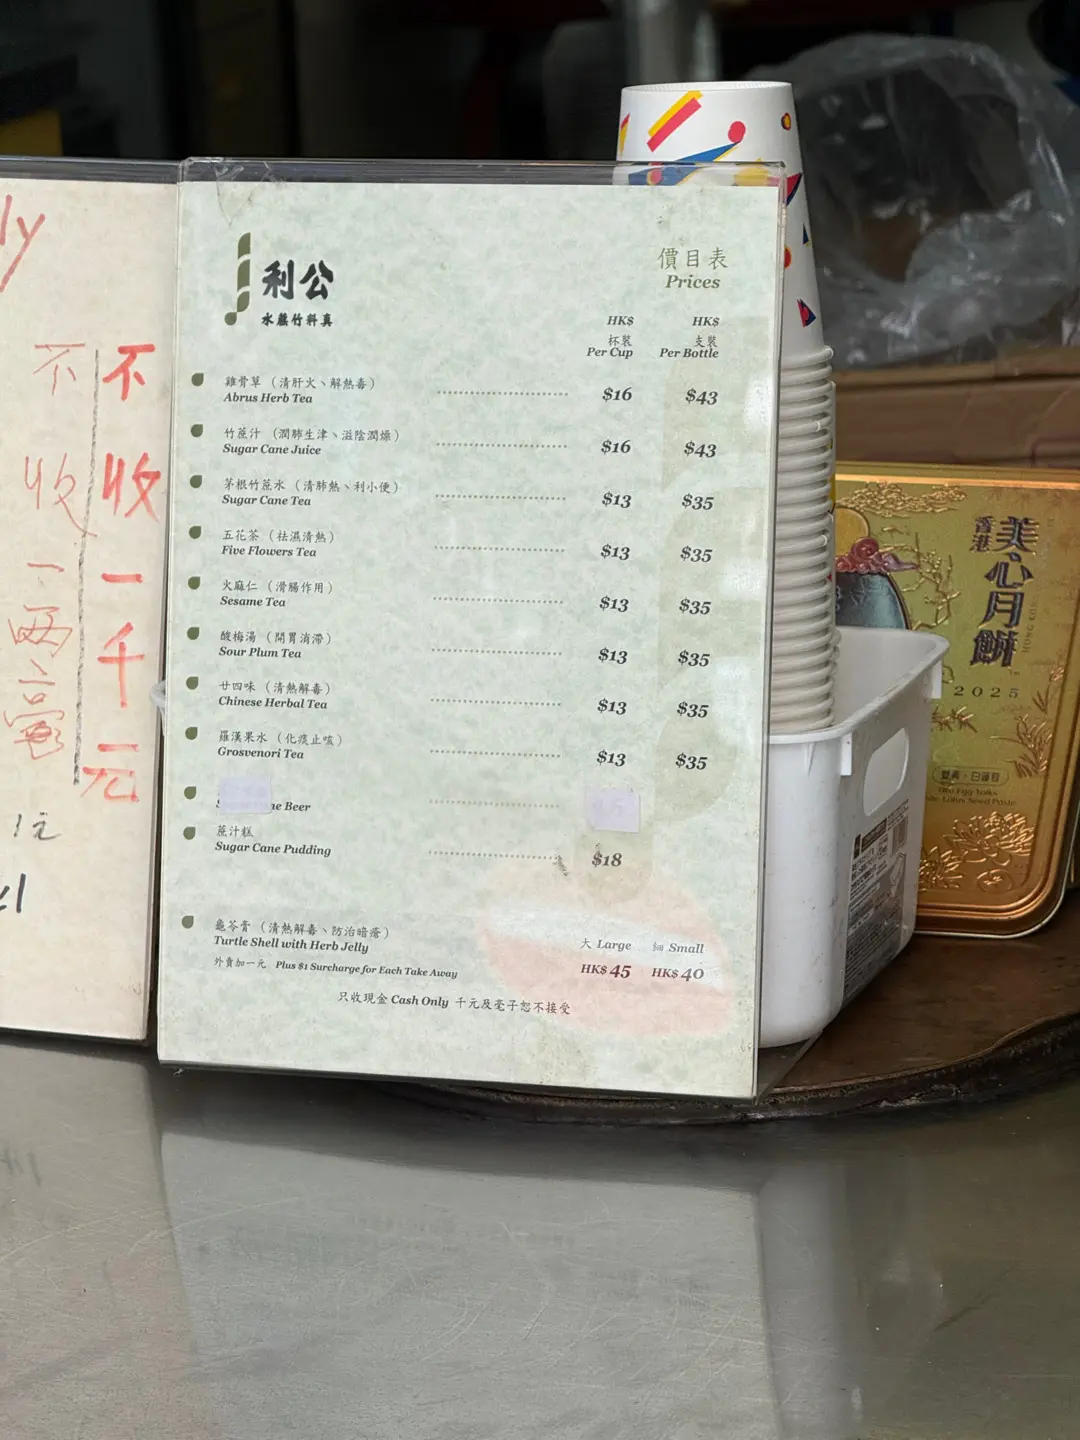 ly
不收一千元
不收一兩毫
1元
利公
水蔗竹料真
價目表
Prices
HK$ HK$
杯裝 支裝
Per Cup Per Bottle
雞骨草（清肝火、解熱毒）
Abrus Herb Tea $16 $43
竹蔗汁（潤肺生津、滋陰潤燥）
Sugar Cane Juice $16 $43
茅根竹蔗水（清肺熱、利小便）
Sugar Cane Tea $13 $35
五花茶（祛濕清熱）
Five Flowers Tea $13 $35
火麻仁（滑腸作用）
Sesame Tea $13 $35
酸梅湯（開胃消滯）
Sour Plum Tea $13 $35
廿四味（清熱解毒）
Chinese Herbal Tea $13 $35
羅漢果水（化痰止咳）
Grosvenori Tea $13 $35
Beer
蔗汁糕
Sugar Cane Pudding $18
龜苓膏（清熱解毒、防治暗瘡）
Turtle Shell with Herb Jelly 大 Large 細 Small
外賣加一元 Plus $1 Surcharge for Each Take Away HK$ 45 HK$ 40
只收現金 Cash Only 千元及毫子恕不接受
香港
美心月餅
HONG KONG
2025
雙黃·白蓮蓉
Two Egg Yolks
White Lotus Seed Paste